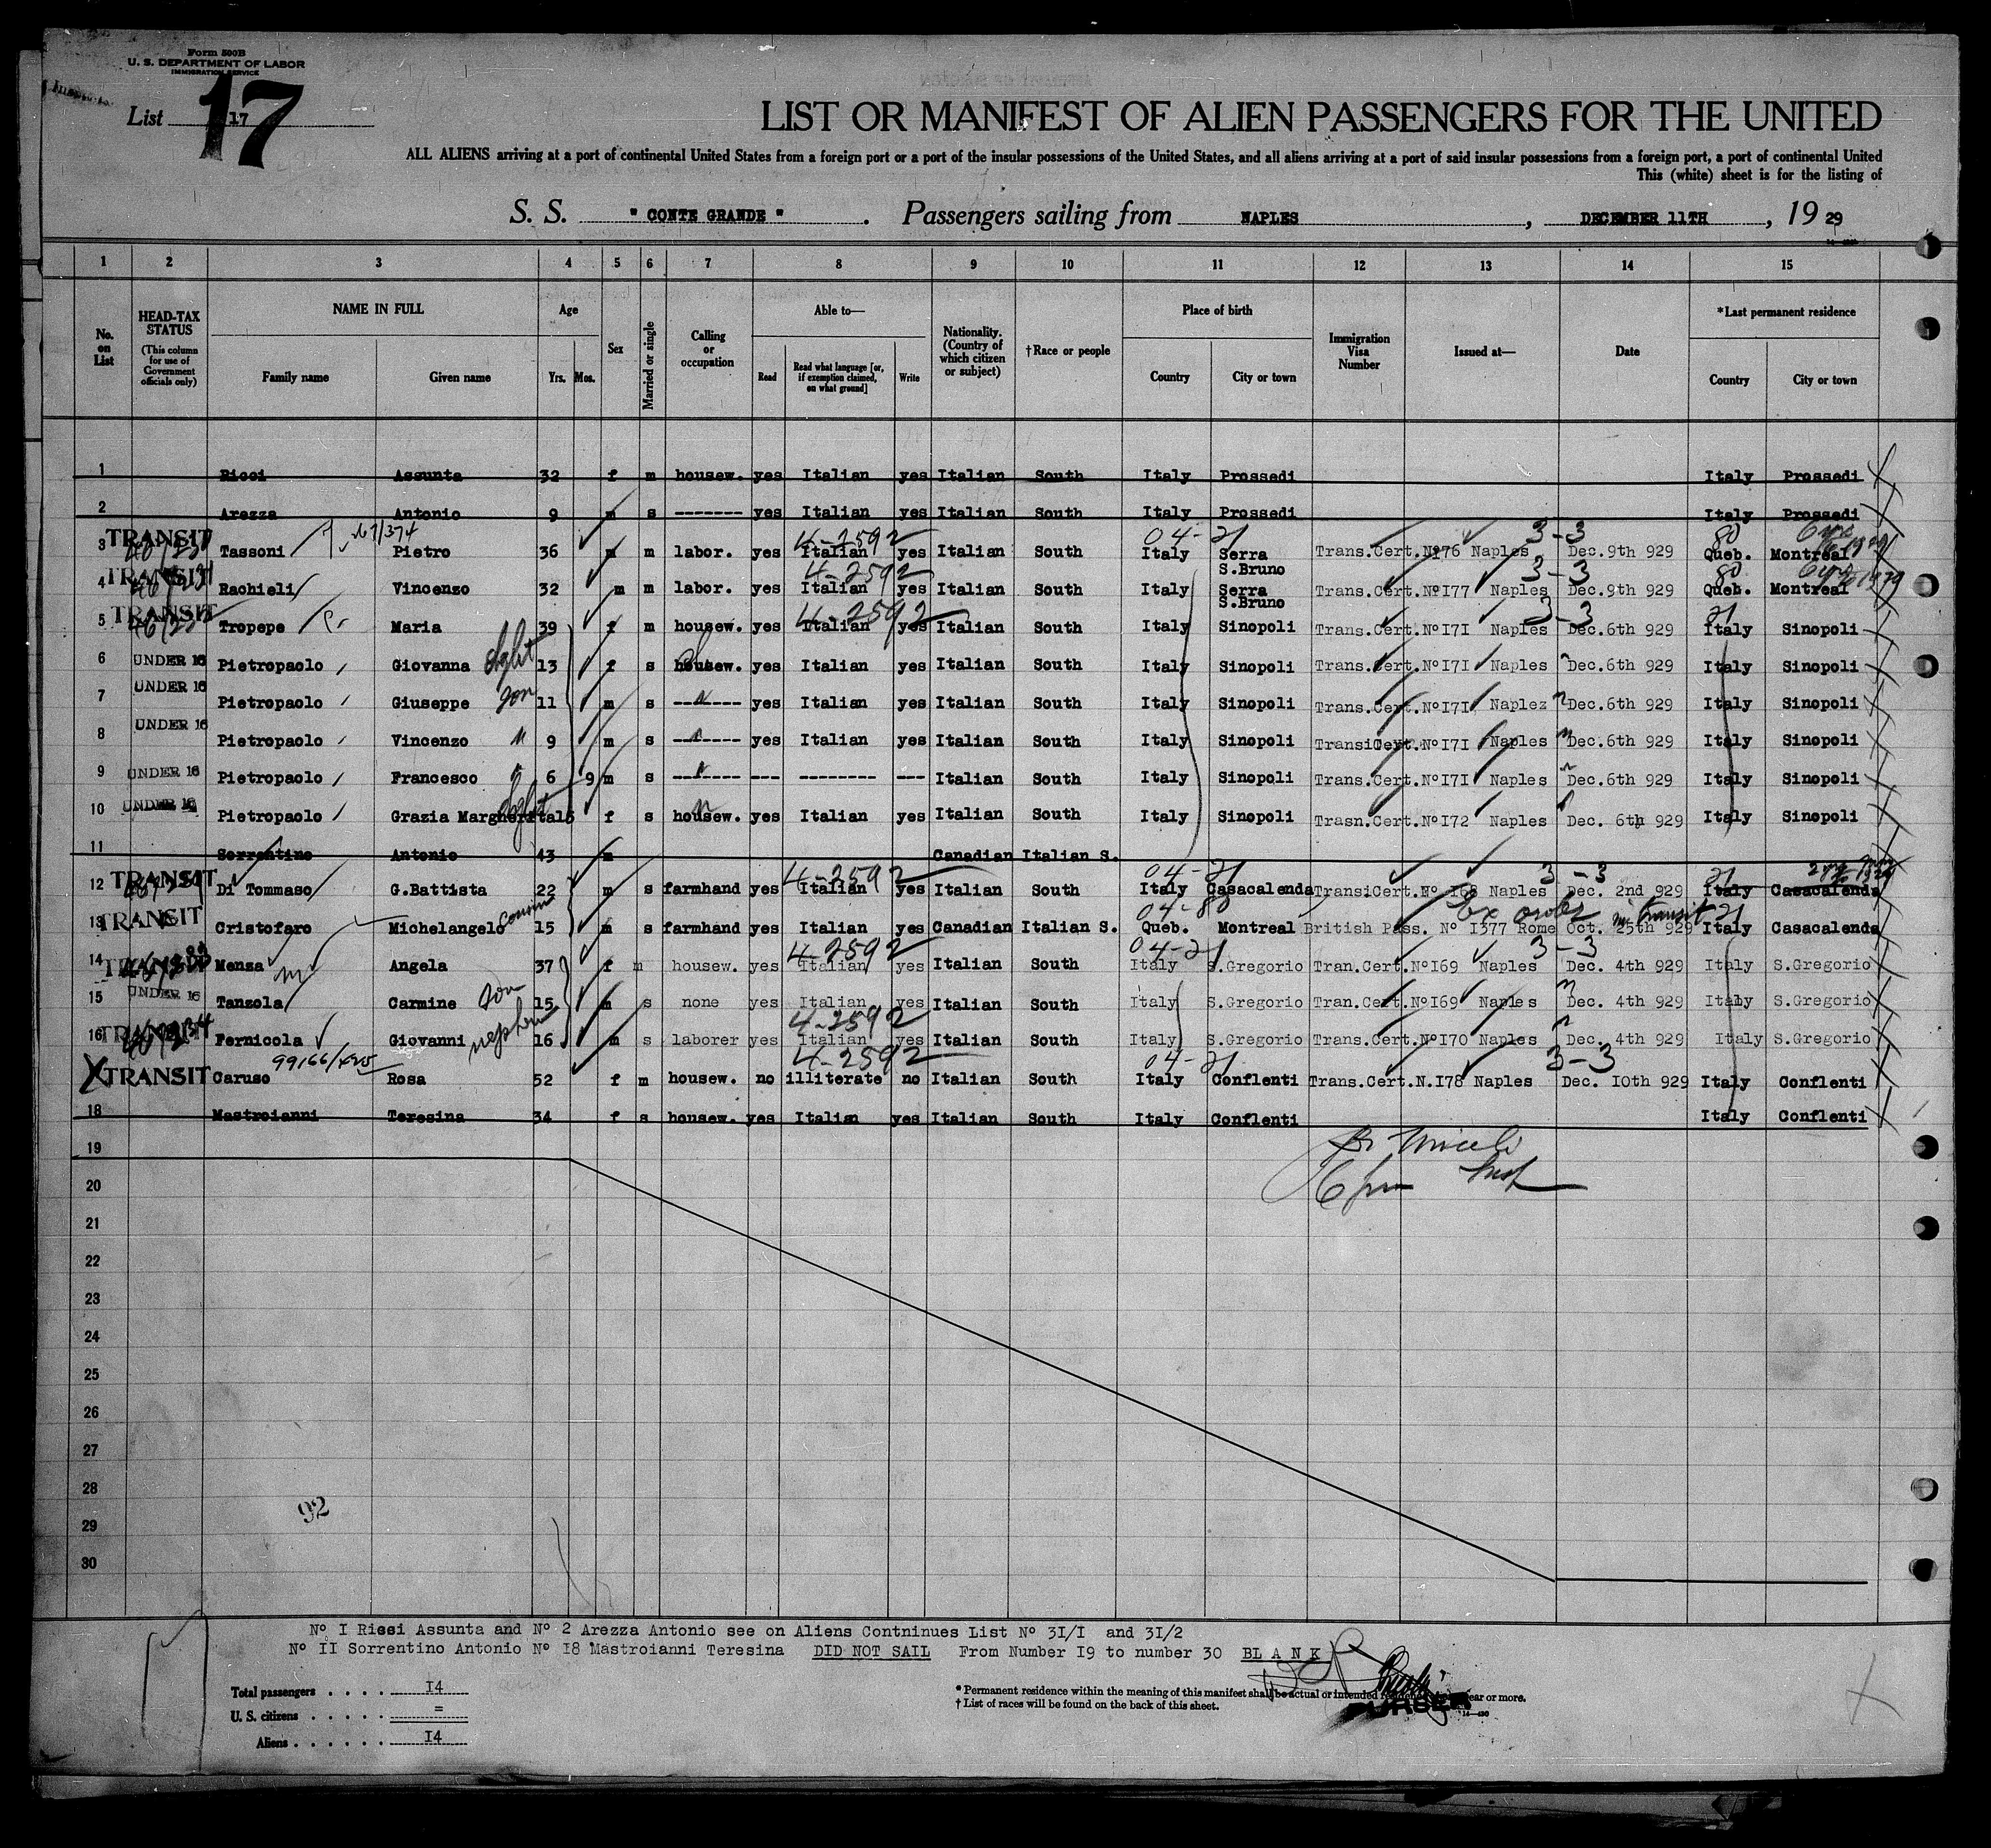 Form 500B
U. S. DEPARTMENT OF LABOR
IMMIGRATION SERVICE
List 17
17
LIST OR MANIFEST OF ALIEN PASSENGERS FOR THE UNITED
ALL ALIENS arriving at a port of continental United States from a foreign port or a port of the insular possessions of the United States, and all aliens arriving at a port of said insular possessions from a foreign port, a port of continental United
This (white) sheet is for the listing of
S. S. " CONTE GRANDE " . Passengers sailing from NAPLES , DECEMBER 11TH , 19 29
1 2 3 4 5 6 7 8 9 10 11 12 13 14 15
No. on List
HEAD-TAX STATUS (This column for use of Government officials only)
NAME IN FULL Family name Given name
Age Yrs. Mos.
Sex
Married or single
Calling or occupation
Able to— Read Read what language [or, if exemption claimed, on what ground] Write
Nationality. (Country of which citizen or subject)
†Race or people
Place of birth Country City or town
Immigration Visa Number
Issued at—
Date
*Last permanent residence Country City or town
1 Ricci Assunta 32 f m housew. yes Italian yes Italian South Italy Prossedi Italy Prossedi
2 Arezza Antonio 9 m s ------- yes Italian yes Italian South Italy Prossedi Italy Prossedi
TRANSIT 4-2592 04-21 3-3 80
3 Tassoni Pietro 36 m m labor. yes Italian yes Italian South Italy Serra S.Bruno Trans.Cert.Nº176 Naples Dec.9th 929 Queb. Montreal
TRANSIT 4-2592 3-3 80
4 Rachieli Vincenzo 32 m m labor. yes Italian yes Italian South Italy Serra S.Bruno Trans.Cert.NºI77 Naples Dec.9th 929 Queb. Montreal
TRANSIT 4-2592 3-3 21
5 Tropepe Maria 39 f m housew. yes Italian yes Italian South Italy Sinopoli Trans.Cert.NºI7I Naples Dec.6th 929 Italy Sinopoli
6 UNDER 16 Pietropaolo Giovanna dght 13 f s housew. yes Italian yes Italian South Italy Sinopoli Trans.Cert.NºI7I Naples Dec.6th 929 Italy Sinopoli
7 UNDER 16 Pietropaolo Giuseppe son 11 m s ------- yes Italian yes Italian South Italy Sinopoli Trans.Cert.NºI7I Naplez Dec.6th 929 Italy Sinopoli
8 UNDER 16 Pietropaolo Vincenzo " 9 m s ------- yes Italian yes Italian South Italy Sinopoli TransiCert.NºI7I Naples Dec.6th 929 Italy Sinopoli
9 UNDER 16 Pietropaolo Francesco " 6 9 m s ------- --- -------- --- Italian South Italy Sinopoli Trans.Cert.NºI7I Naples Dec.6th 929 Italy Sinopoli
10 UNDER 16 Pietropaolo Grazia Margherita dght 15 f s housew. yes Italian yes Italian South Italy Sinopoli Trasn.Cert.NºI72 Naples Dec. 6th 929 Italy Sinopoli
11 Sorrentino Antonio 43 m Canadian Italian S.
TRANSIT 4-2592 04-21 3-3 21
12 Di Tommaso G.Battista 22 m s farmhand yes Italian yes Italian South Italy Casacalenda TransiCert.Nº I68 Naples Dec. 2nd 929 Italy Casacalenda
TRANSIT 04-80 in transit 21
13 Cristofaro Michelangelo cousin 15 m s farmhand yes Italian yes Canadian Italian S. Queb. Montreal British Pass. Nº I377 Rome Oct. 25th 929 Italy Casacalenda
TRANSIT 4-2592 04-21 3-3
14 Menza Angela 37 f m housew. yes Italian yes Italian South Italy S.Gregorio Tran.Cert.NºI69 Naples Dec. 4th 929 Italy S.Gregorio
15 UNDER 16 Tanzola Carmine son 15 m s none yes Italian yes Italian South Italy S.Gregorio Tran.Cert.NºI69 Naples Dec. 4th 929 Italy S.Gregorio
TRANSIT 4-2592
16 Fernicola Giovanni nephew 16 m s laborer yes Italian yes Italian South Italy S.Gregorio Trans.Cert.NºI70 Naples Dec. 4th 929 Italy S.Gregorio
4-2592 04-21 3-3
X TRANSIT Caruso Rosa 52 f m housew. no illiterate no Italian South Italy Conflenti Trans.Cert.N.I78 Naples Dec. IOth 929 Italy Conflenti
18 Mastroianni Teresina 34 f s housew. yes Italian yes Italian South Italy Conflenti Italy Conflenti
19
20
21
22
23
24
25
26
27
28
29
30
92
Nº I Ricci Assunta and Nº 2 Arezza Antonio see on Aliens Contninues List Nº 3I/I and 3I/2
Nº II Sorrentino Antonio Nº I8 Mastroianni Teresina DID NOT SAIL From Number I9 to number 30 BLANK
Total passengers . . . . I4
U. S. citizens . . . . . =
Aliens . . . . . . I4
* Permanent residence within the meaning of this manifest shall be actual or intended residence year or more.
† List of races will be found on the back of this sheet.
PURSER